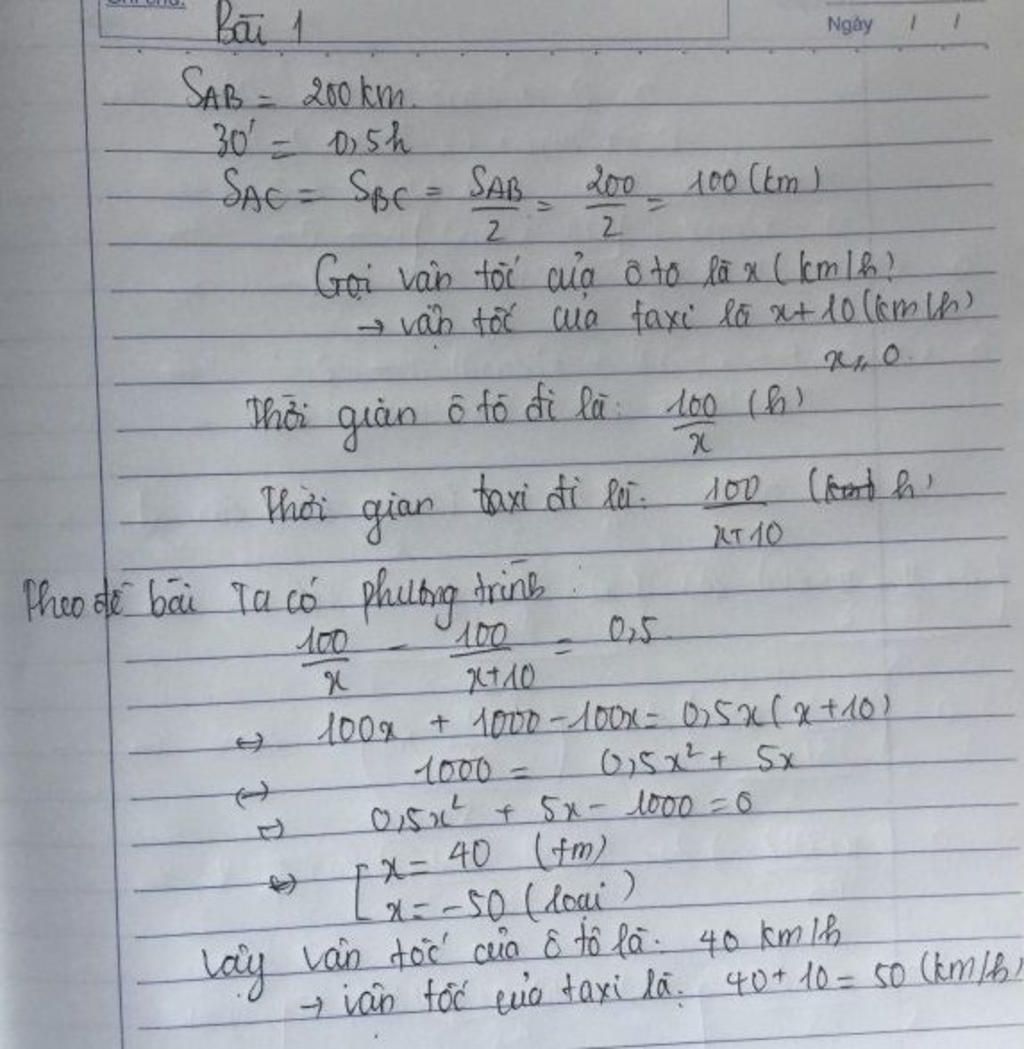 Bài 1
Ngày / /
S_AB = 200 km.
30' = 0,5h
S_AC = S_BC = S_AB/2 = 200/2 = 100 (km)
Gọi vận tốc của ô tô là x (km/h)
→ vận tốc của taxi là x + 10 (km/h)
x > 0.
Thời gian ô tô đi là: 100/x (h)
Thời gian taxi đi là: 100/(x+10) (h)
Theo đề bài Ta có phương trình :
100/x - 100/(x+10) = 0,5
↔ 100x + 1000 - 100x = 0,5x (x + 10)
↔ 1000 = 0,5x² + 5x
⇔ 0,5x² + 5x - 1000 = 0
⇔ [ x = 40 (tm)
x = -50 (loại)
Vậy vận tốc của ô tô là: 40 km/h
→ vận tốc của taxi là: 40 + 10 = 50 (km/h)